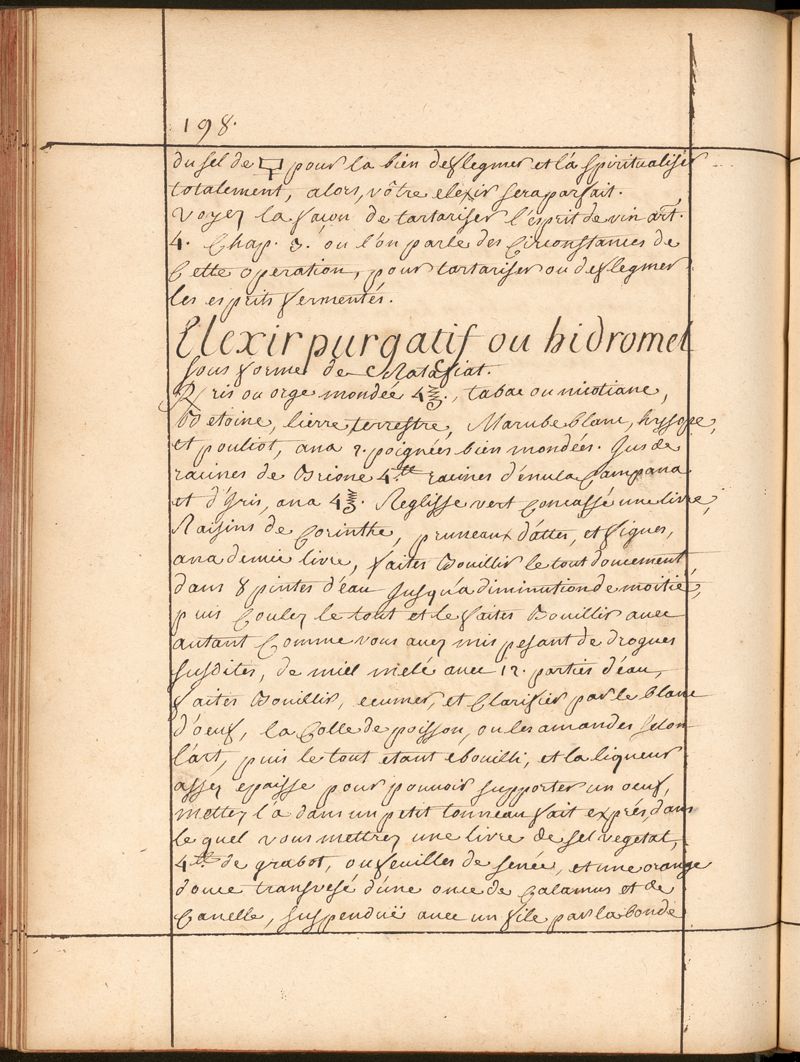 198.
du sel de pour la bien deflegmer et la spiritualiser
totalement, alors, vôtre elexir sera parfait.
Voyez la façon de tartariser l'esprit de vin art.
4. Chap. 3. ou l'on parle des Circonstances de
Cette operation, pour tartariser ou deflegmer
les esprits fermentés.
Elexir purgatif ou hidromel
sous forme de Ratafiat.
Ris ou orge mondée 4℥., tabac ou nicotiane,
Betoine, lierre terrestre, Marube blanc, hyssope,
et pouliot, ana 2. poignées bien mondées. Jus de
racines de Brione 4.tt racines d'énula Campana
et d'Iris, ana 4℥. Reglisse vert Concassé une livre,
Raisins de Corinthe, pruneaux dattes, et figues,
ana demie livre, faites Bouillir le tout doucement
dans 8 pintes d'eau Jusqu'a diminution de moitié,
puis Coulez le tout et le faites Bouillir avec
autant Comme vous avez mis pesant de drogues
susdites, de miel mélé avec 12. parties d'eau,
faites Bouillir, ecumer, et Clarifier par le blanc
d'oeuf, la Colle de poisson, ou les amandes selon
l'art, puis le tout etant ebouilli, et la liqueur
assez epaisse pour pouvoir supporter un oeuf,
mettez la dans un petit tonneau fait exprés, dans
le quel vous mettrez une livre de sel vegetal,
4.tt de grabot, ou feuilles de senée, et une orange
douce transvesé d'une once de Calamus et de
Canelle, suspenduë avec un file par la bonde